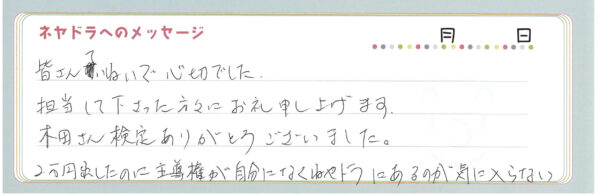 ネヤドラへのメッセージ
月 日
皆さんていねいで心切でした.
担当して下さった方々にお礼申し上げます.
本田さん検定ありがとうございました。
2万円出したのに主導権が自分になくねやドラにあるのが気に入らない